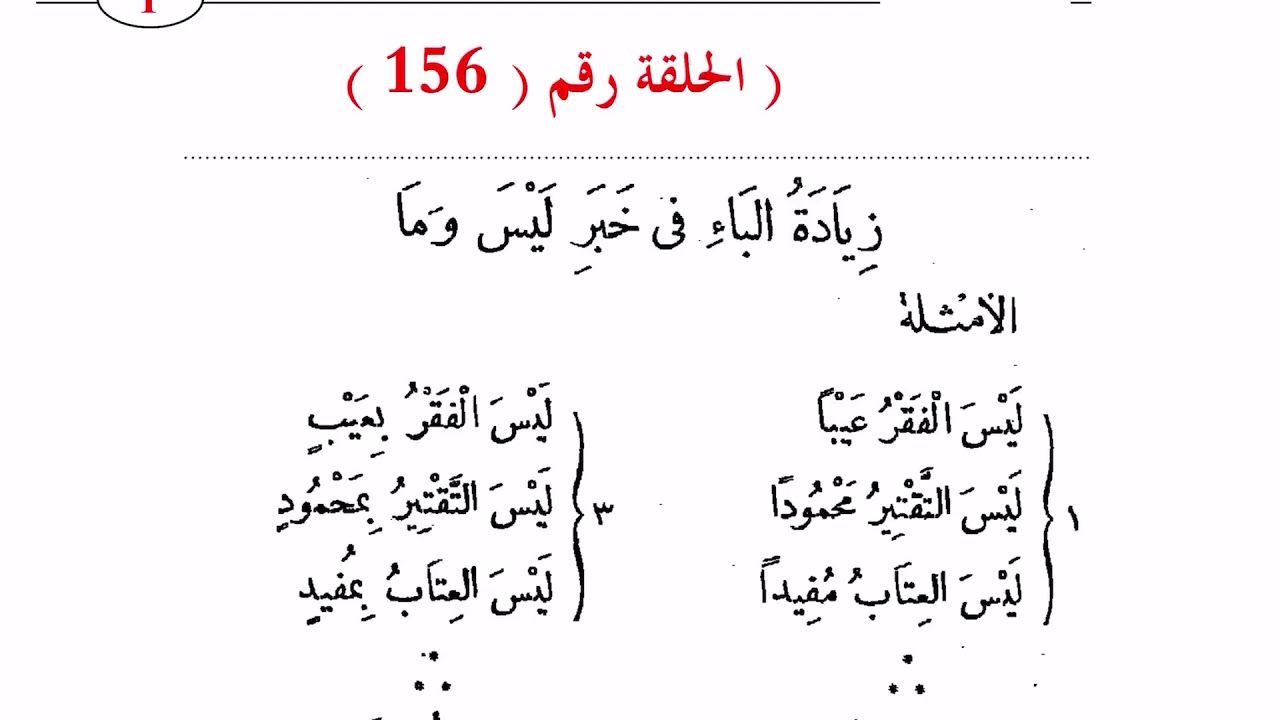 ١
( الحلقة رقم ( 156 )
زِيَادَةُ البَاءِ فى خَبَرِ لَيْسَ وَمَا
الأمْثلة
١ لَيْسَ الْفَقْرُ عَيْبًا
لَيْسَ التَّقْتِيرُ مَحْمُودًا
لَيْسَ العِتَابُ مُفِيداً
٣ لَيْسَ الْفَقْرُ بِعَيْبٍ
لَيْسَ التَّقْتِيرُ بِمَحْمُودٍ
لَيْسَ العِتَابُ بِمُفيدٍ